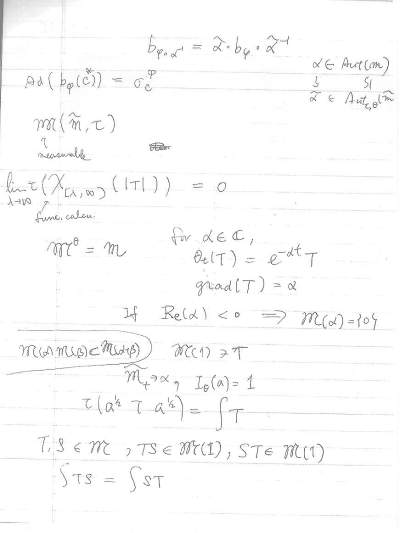 b_{φ∘α⁻¹} = α̃ · b_φ · α̃⁻¹
α ∈ Aut(m)
Ad(b_φ(c*)) = σ_c^φ
α̃ ∈ Aut_{τ,θ}(m̃
𝔐(m̃, τ)
measurable
lim_{λ→∞} τ(χ_{(λ,∞)}(|T|)) = 0
func. calcu.
𝔐^θ = m
for α ∈ ℂ,
θ_t(T) = e^{-αt} T
grad(T) = α
If Re(α) < 0 ⟹ 𝔐(α) = {0}
𝔐(α)𝔐(β) ⊂ 𝔐(α+β)
𝔐(1) ∋ T
m̃_+ ∋ a, I_θ(a) = 1
τ(a^{1/2} T a^{1/2}) = ∫T
T, S ∈ 𝔐, TS ∈ 𝔐(1), ST ∈ 𝔐(1)
∫TS = ∫ST